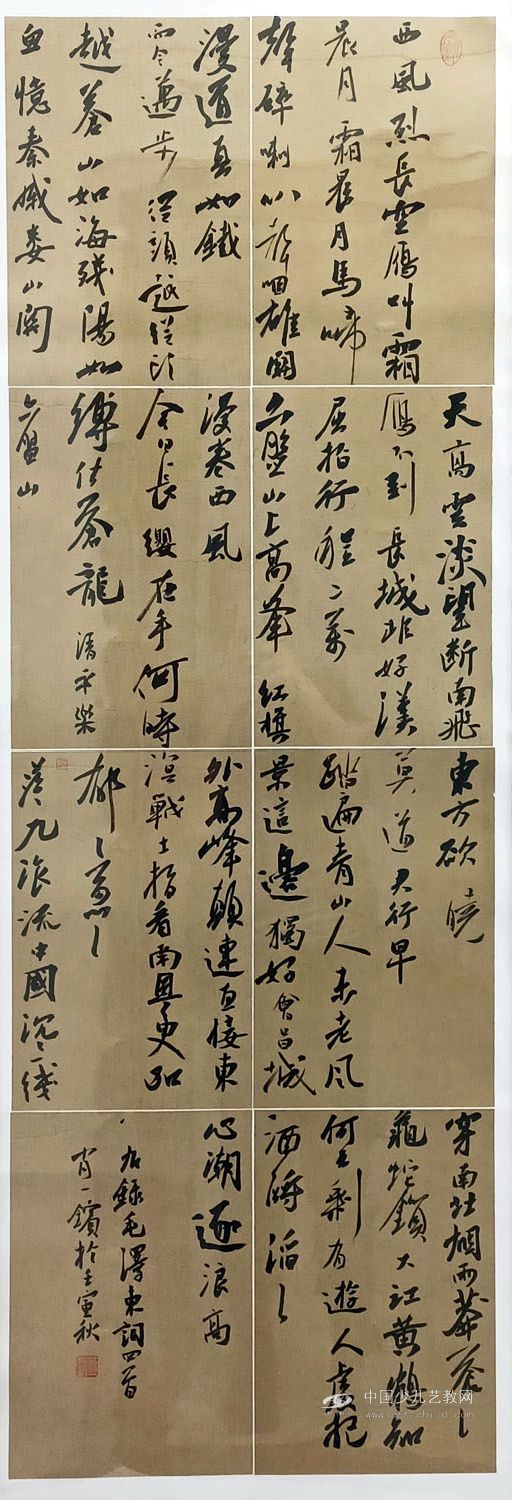 西風烈長空雁叫霜
晨月霜晨月馬啼
聲碎喇叭聲咽雄關
漫道真如鐵
而今邁步從頭越從頭
越蒼山如海殘陽如
血憶秦娥娄山關
天高雲淡望断南飛
雁不到長城非好漢
屈指行程二萬
六盤山上高峯紅旗
漫卷西風
今日長纓在手何時
縛住蒼龍 清平樂
六盘山
東方欲曉
莫道君行早
踏遍青山人未老風
景這邊獨好會昌城
外高峰顛連直接東
溟戰士指看南粤更加
郁〻葱〻
茫九派流中國沉〻一线
穿南北烟雨莽蒼〻
龜蛇鎖大江黄鶴知
何去剩有遊人處把
酒酹滔〻
心潮逐浪高
右錄毛澤東詞四首
肖一鑌於壬寅秋
中国少儿艺教网
www.art-child.com